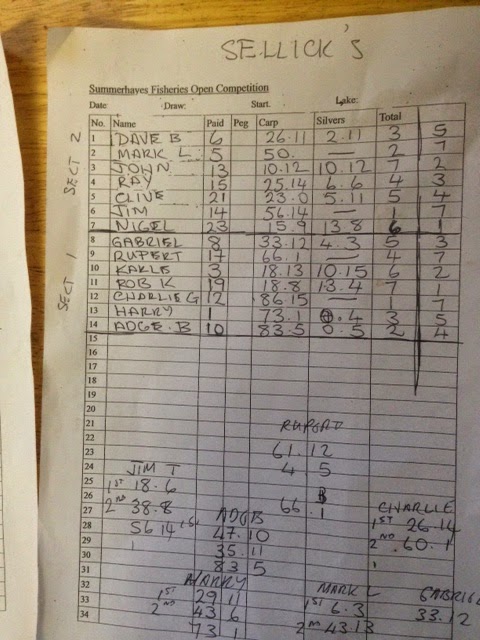 SELLICK'S
Summerhayes Fisheries Open Competition
Date Draw: Start. Lake:
No. Name Paid Peg Carp Silvers Total
SECT 2
1 DAVE B 6 26.11 2.11 3 5
2 MARK L 5 50. — 2 7
3 JOHN 13 10.12 10.12 7 2
4 RAY 15 25.14 6.6 4 3
5 CLIVE 21 23.0 5.11 5 4
6 JIM 14 56.14 — 1 7
7 NIGEL 23 15.9 13.8 6 1
SECT 1
8 GABRIEL 8 33.12 4.3 5 3
9 RUPERT 17 66.1 — 4 7
10 KARLE 3 18.13 10.15 6 2
11 ROB K 19 18.8 13.4 7 1
12 CHARLIE G 12 86.15 — 1 7
13 HARRY 1 73.1 0.4 3 5
14 ADGE.B 10 83.5 0.5 2 4
15
16
17
18
19
20
21
22
23
24
25
26
27
28
29
30
31
32
33
34
RUPERT
61.12
4 5
66.1
JIM T
1ST 18.6
2ND 38.8
56 14
ADGB
47.10
35.11
83 5
CHARLIE
1ST 26.14
2ND 60.1
HARRY
1ST 29 11
2ND 43.6
73 1
MARK L
1ST 6.3
2ND 43.13
GABRIEL
33.12